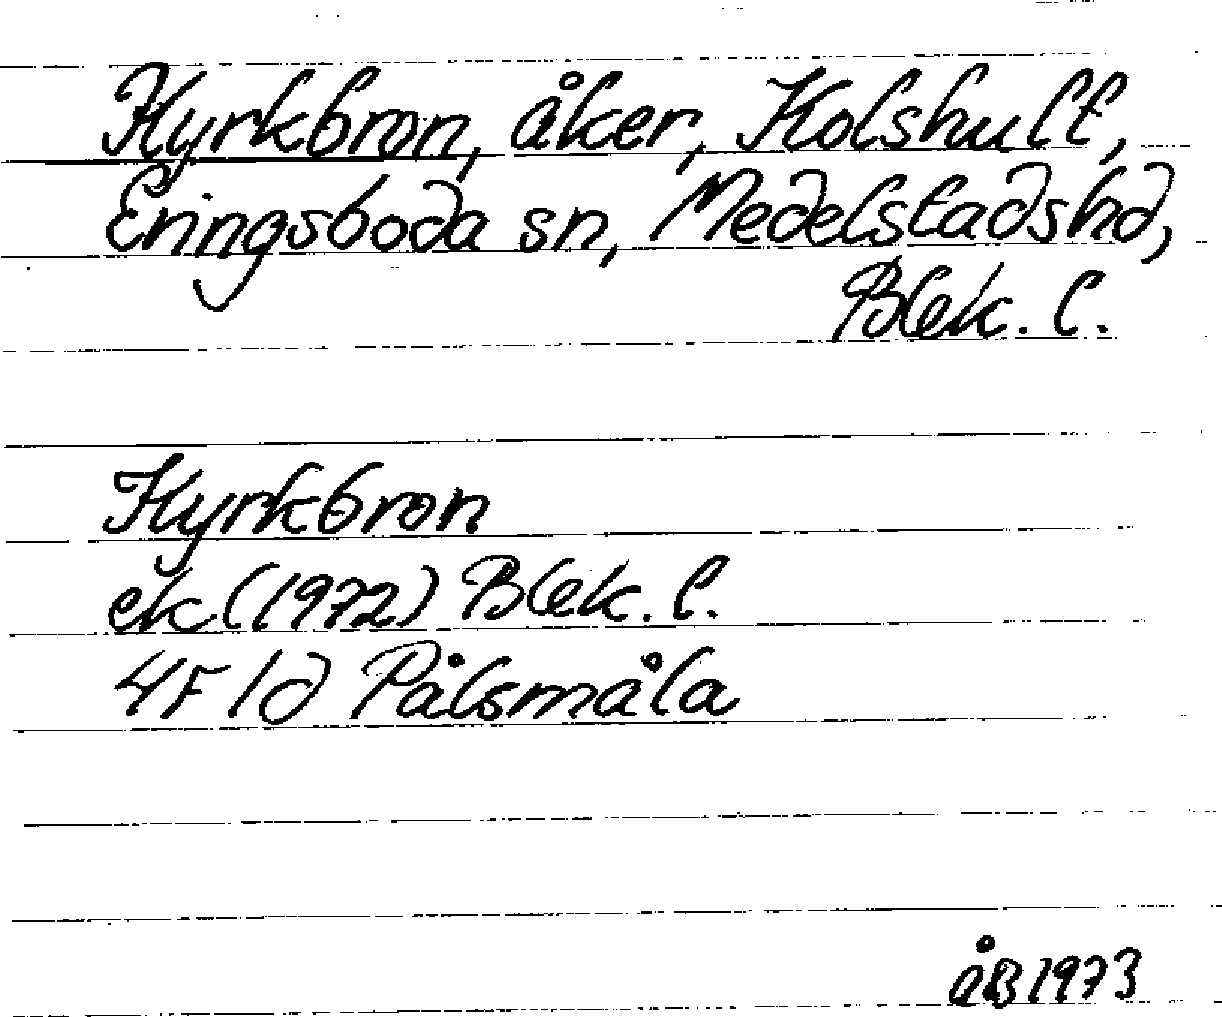 Kyrkbron, åker, Kolshult,
Eringsboda sn, Medelstadshd,
Blek. l.
Kyrkbron
ek (1972) Blek. l.
4F 1d Pålsmåla
åB 1973